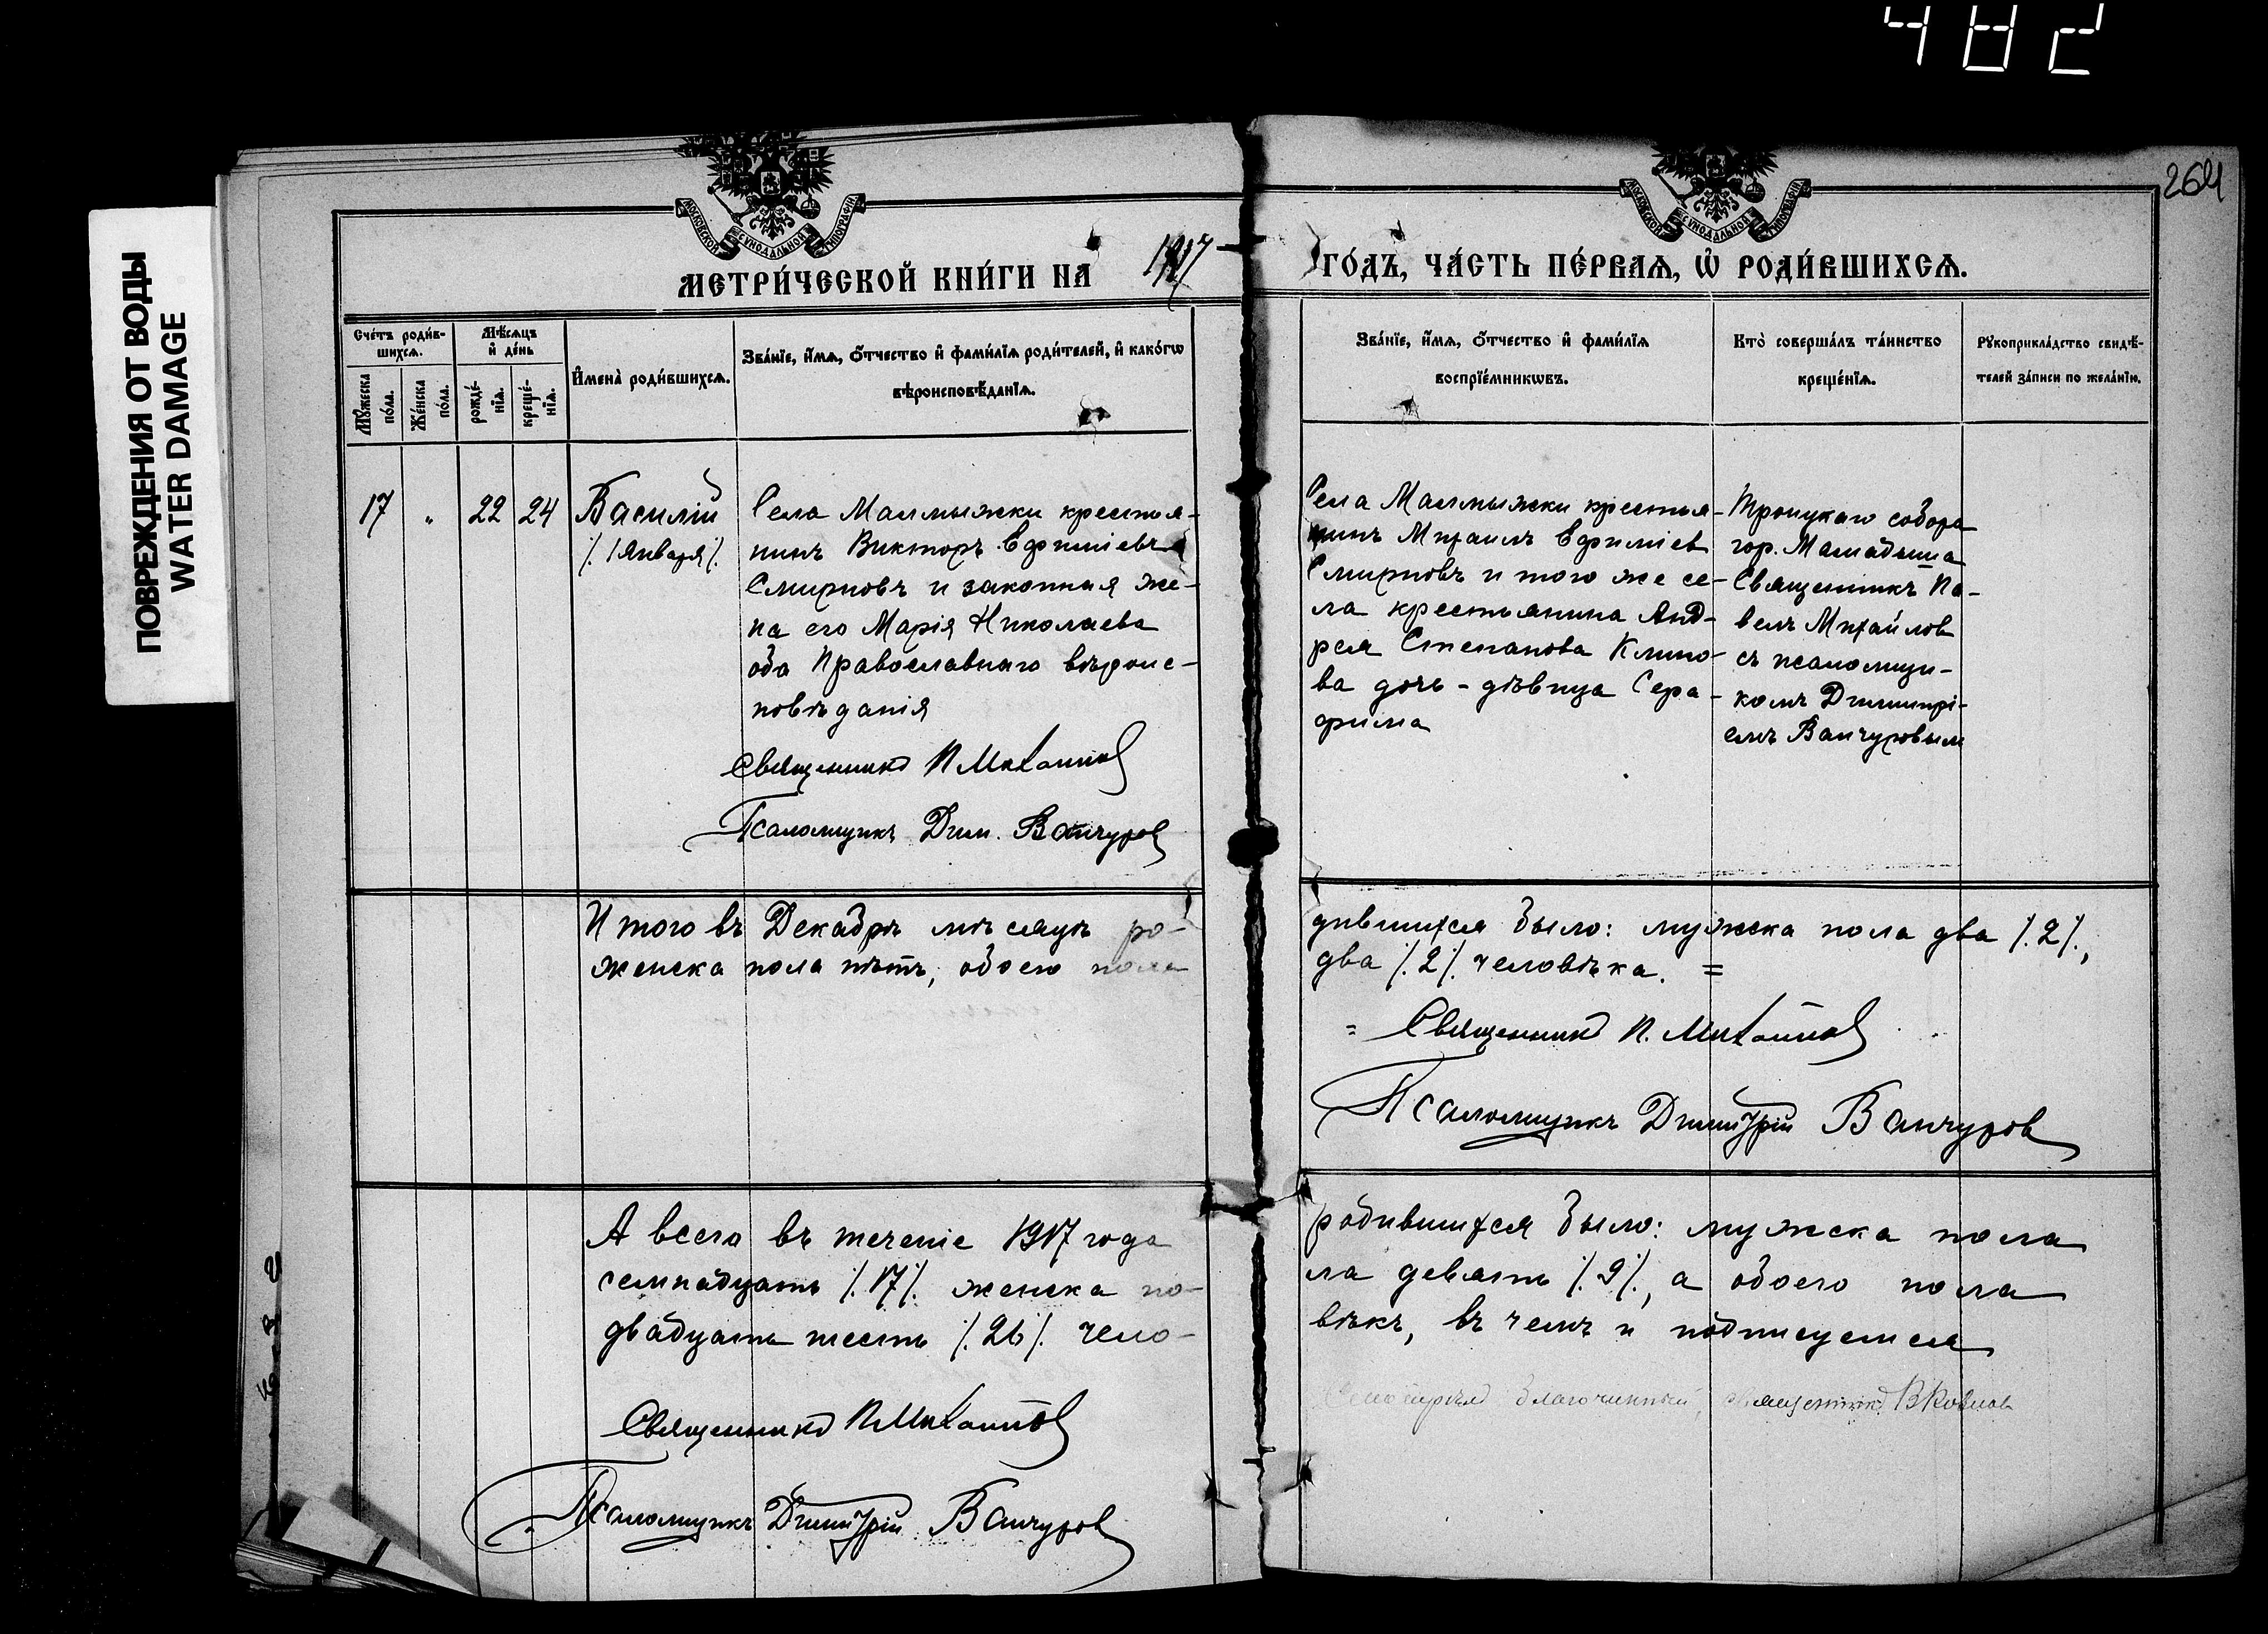 482
ПОВРЕЖДЕНИЯ ОТ ВОДЫ
WATER DAMAGE
264
МОСКОВСКОЙ СѴНОДАЛЬНОЙ ТИПОГРАФІИ
МОСКОВСКОЙ СѴНОДАЛЬНОЙ ТИПОГРАФІИ
МЕТРИ́ЧЕСКОЙ КНИ́ГИ НА 1917
ГО́ДЪ, ЧА́СТЬ ПЕ́РВАѦ, Ѡ҆ РОДИ́ВШИХСѦ.
Сче́тъ роди́в-
шихсѧ.
Мѣ́сѧцъ
и҆ де́нь
Мꙋ́жеска
по́ла.
Же́нска
по́ла.
рожде́-
нїѧ.
креще́-
нїѧ.
И҆мена̀ роди́вшихсѧ.
Зва́нїе, и҆́мѧ, ѻ҆́тчество и҆ фами́лїѧ роди́телей, и҆ како́гѡ
вѣроисповѣ́данїѧ.
Зва́нїе, и҆́мѧ, ѻ҆́тчество и҆ фами́лїѧ
воспрїе́мникѡвъ.
Кто̀ соверша́лъ та́инство
креще́нїѧ.
Рꙋкоприкла́дство свидѣ́-
телей за́писи по жела́нїю.
17 " 22 24
Василій
/. 1 Января /.
Села Малмыжки крестья-
нинъ Викторъ Ефиміевъ
Смирновъ и законная же-
на его Марія Николаева
оба Православнаго вѣроис-
повѣданія
Священникъ П Михайлов
Псаломщикъ Дим. Ванчуров
Села Малмыжки крестья-
нинъ Михаилъ Ефиміев
Смирновъ и того же се-
ла крестьянина Анд-
рея Степанова Климо-
ва дочь - дѣвица Сера-
фима
Троицкаго собора
гор. Мамадыша
Священникъ Па-
велъ Михайлов
съ псаломщи-
комъ Димитрі-
емъ Ванчуровым
Итого въ Декабрѣ мѣсяцѣ ро-
дившихся было: мужска пола два /. 2 /.,
женска пола нѣтъ, обоего пола
два /. 2 /. человѣка. =
= Священникъ П. Михайлов
Псаломщикъ Димитрій Ванчуров
А всего въ теченіе 1917 года
родившихся было: мужска пола
семнадцать /. 17 /. женска по-
ла девять /. 9 /., а обоего пола
двадцать шесть /. 26 /. чело-
вѣкъ, въ чемъ и подписуемся
Священникъ П Михайлов
Псаломщикъ Димитрій Ванчуров
Благочинный, священникъ В